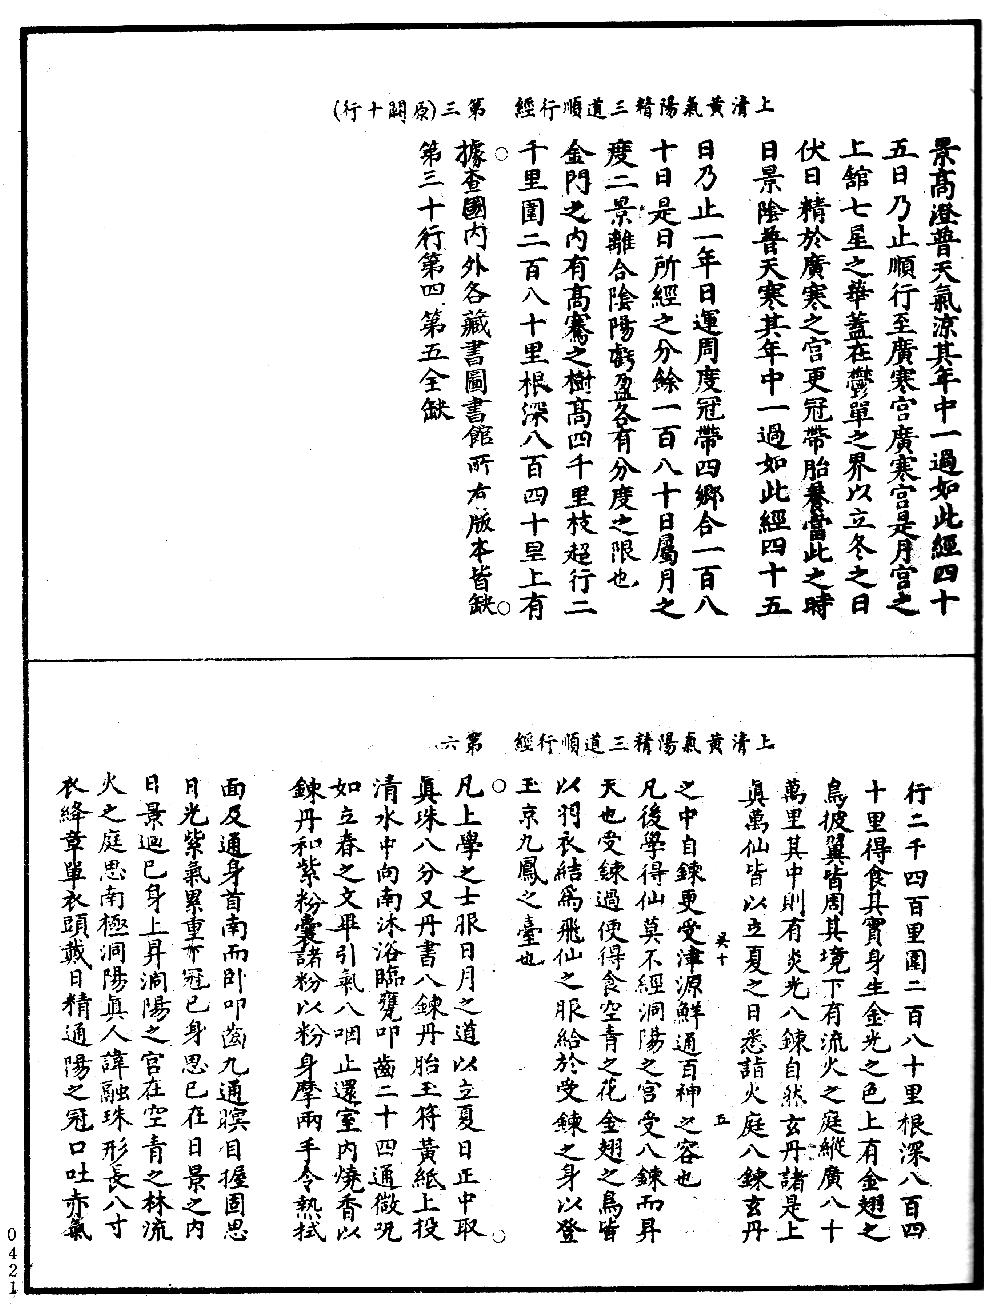 上清黃氣陽精三道順行經　第三(原闕十行)
景高澄普天氣涼其年中一過如此經四十
五日乃止順行至廣寒宮廣寒宮是月宮之
上舘七星之華蓋在鬱單之界以立冬之日
伏日精於廣寒之宮更冠帶胎養當此之時
日景陰普天寒其年中一過如此經四十五
日乃止一年日運周度冠帶四鄉合一百八
十日是日所經之分餘一百八十日屬月之
度二景離合陰陽虧盈各有分度之限也
金門之內有高騫之樹高四千里枝超行二
千里圍二百八十里根深八百四十里上有
○據查國內外各藏書圖書館所有版本皆缺○
第三十行第四、第五全缺
上清黃氣陽精三道順行經　第六
行二千四百里圍二百八十里根深八百四
十里得食其實身生金光之色上有金翅之
鳥披翼皆周其境下有流火之庭縱廣八十
萬里其中則有炎光八鍊自然玄丹諸是上
眞萬仙皆以立夏之日悉詣火庭八鍊玄丹
吳十　五
之中自鍊更受津源鮮通百神之容也
凡後學得仙莫不經洞陽之宮受八鍊而昇
天也受鍊過便得食空青之花金翅之鳥皆
以羽衣結爲飛仙之服給於受鍊之身以登
玉京九鳳之臺也
○　○
凡上學之士服日月之道以立夏日正中取
眞珠八分又丹書八鍊丹胎玉符黃紙上投
清水中向南沐浴臨甕叩齒二十四通微咒
如立春之文畢引氣八咽止還室內燒香以
鍊丹和紫粉囊諸粉以粉身摩兩手令熱拭
面及通身首南而卧叩齒九通瞑目握固思
日光紫氣累重亦冠己身思己在日景之內
日景迴己身上昇洞陽之宮在空青之林流
火之庭思南極洞陽眞人諱融珠形長八寸
衣絳章單衣頭戴日精通陽之冠口吐赤氣
0421